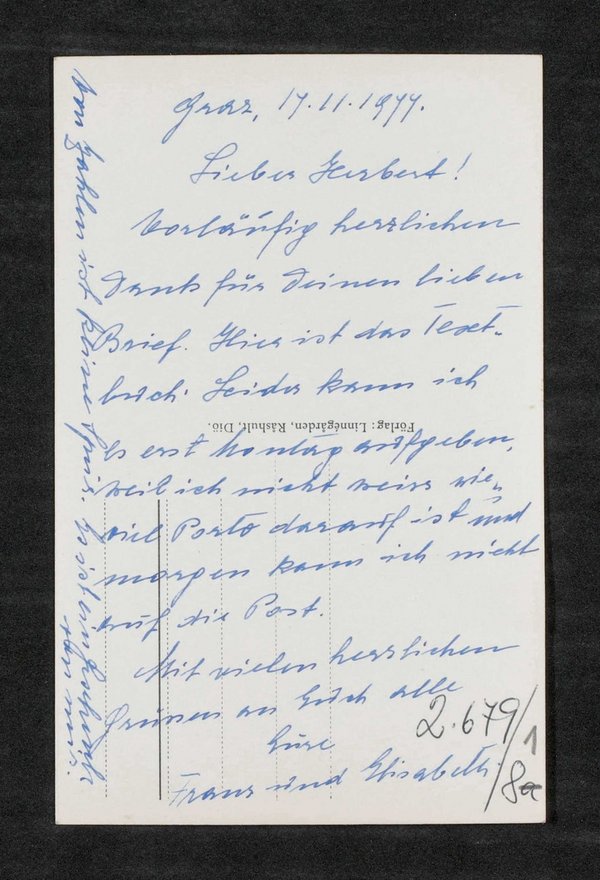 Graz, 17.11.1977.
Lieber Herbert!
Vorläufig herzlichen
Dank für Deinen lieben
Brief. Hier ist das Text-
buch. Leider kann ich
es erst Montag aufgeben,
weil ich nicht weiss wie-
viel Porto darauf ist und
morgen kann ich nicht
auf die Post.
Mit vielen herzlichen
Grüssen an Euch alle
Eure
Franz und Elisabeth.
Von Zahlen ist keine
Es ist ein Geschenk
von uns.
Förlag: Linnégården, Råshult, Diö.
2.679/1
8a